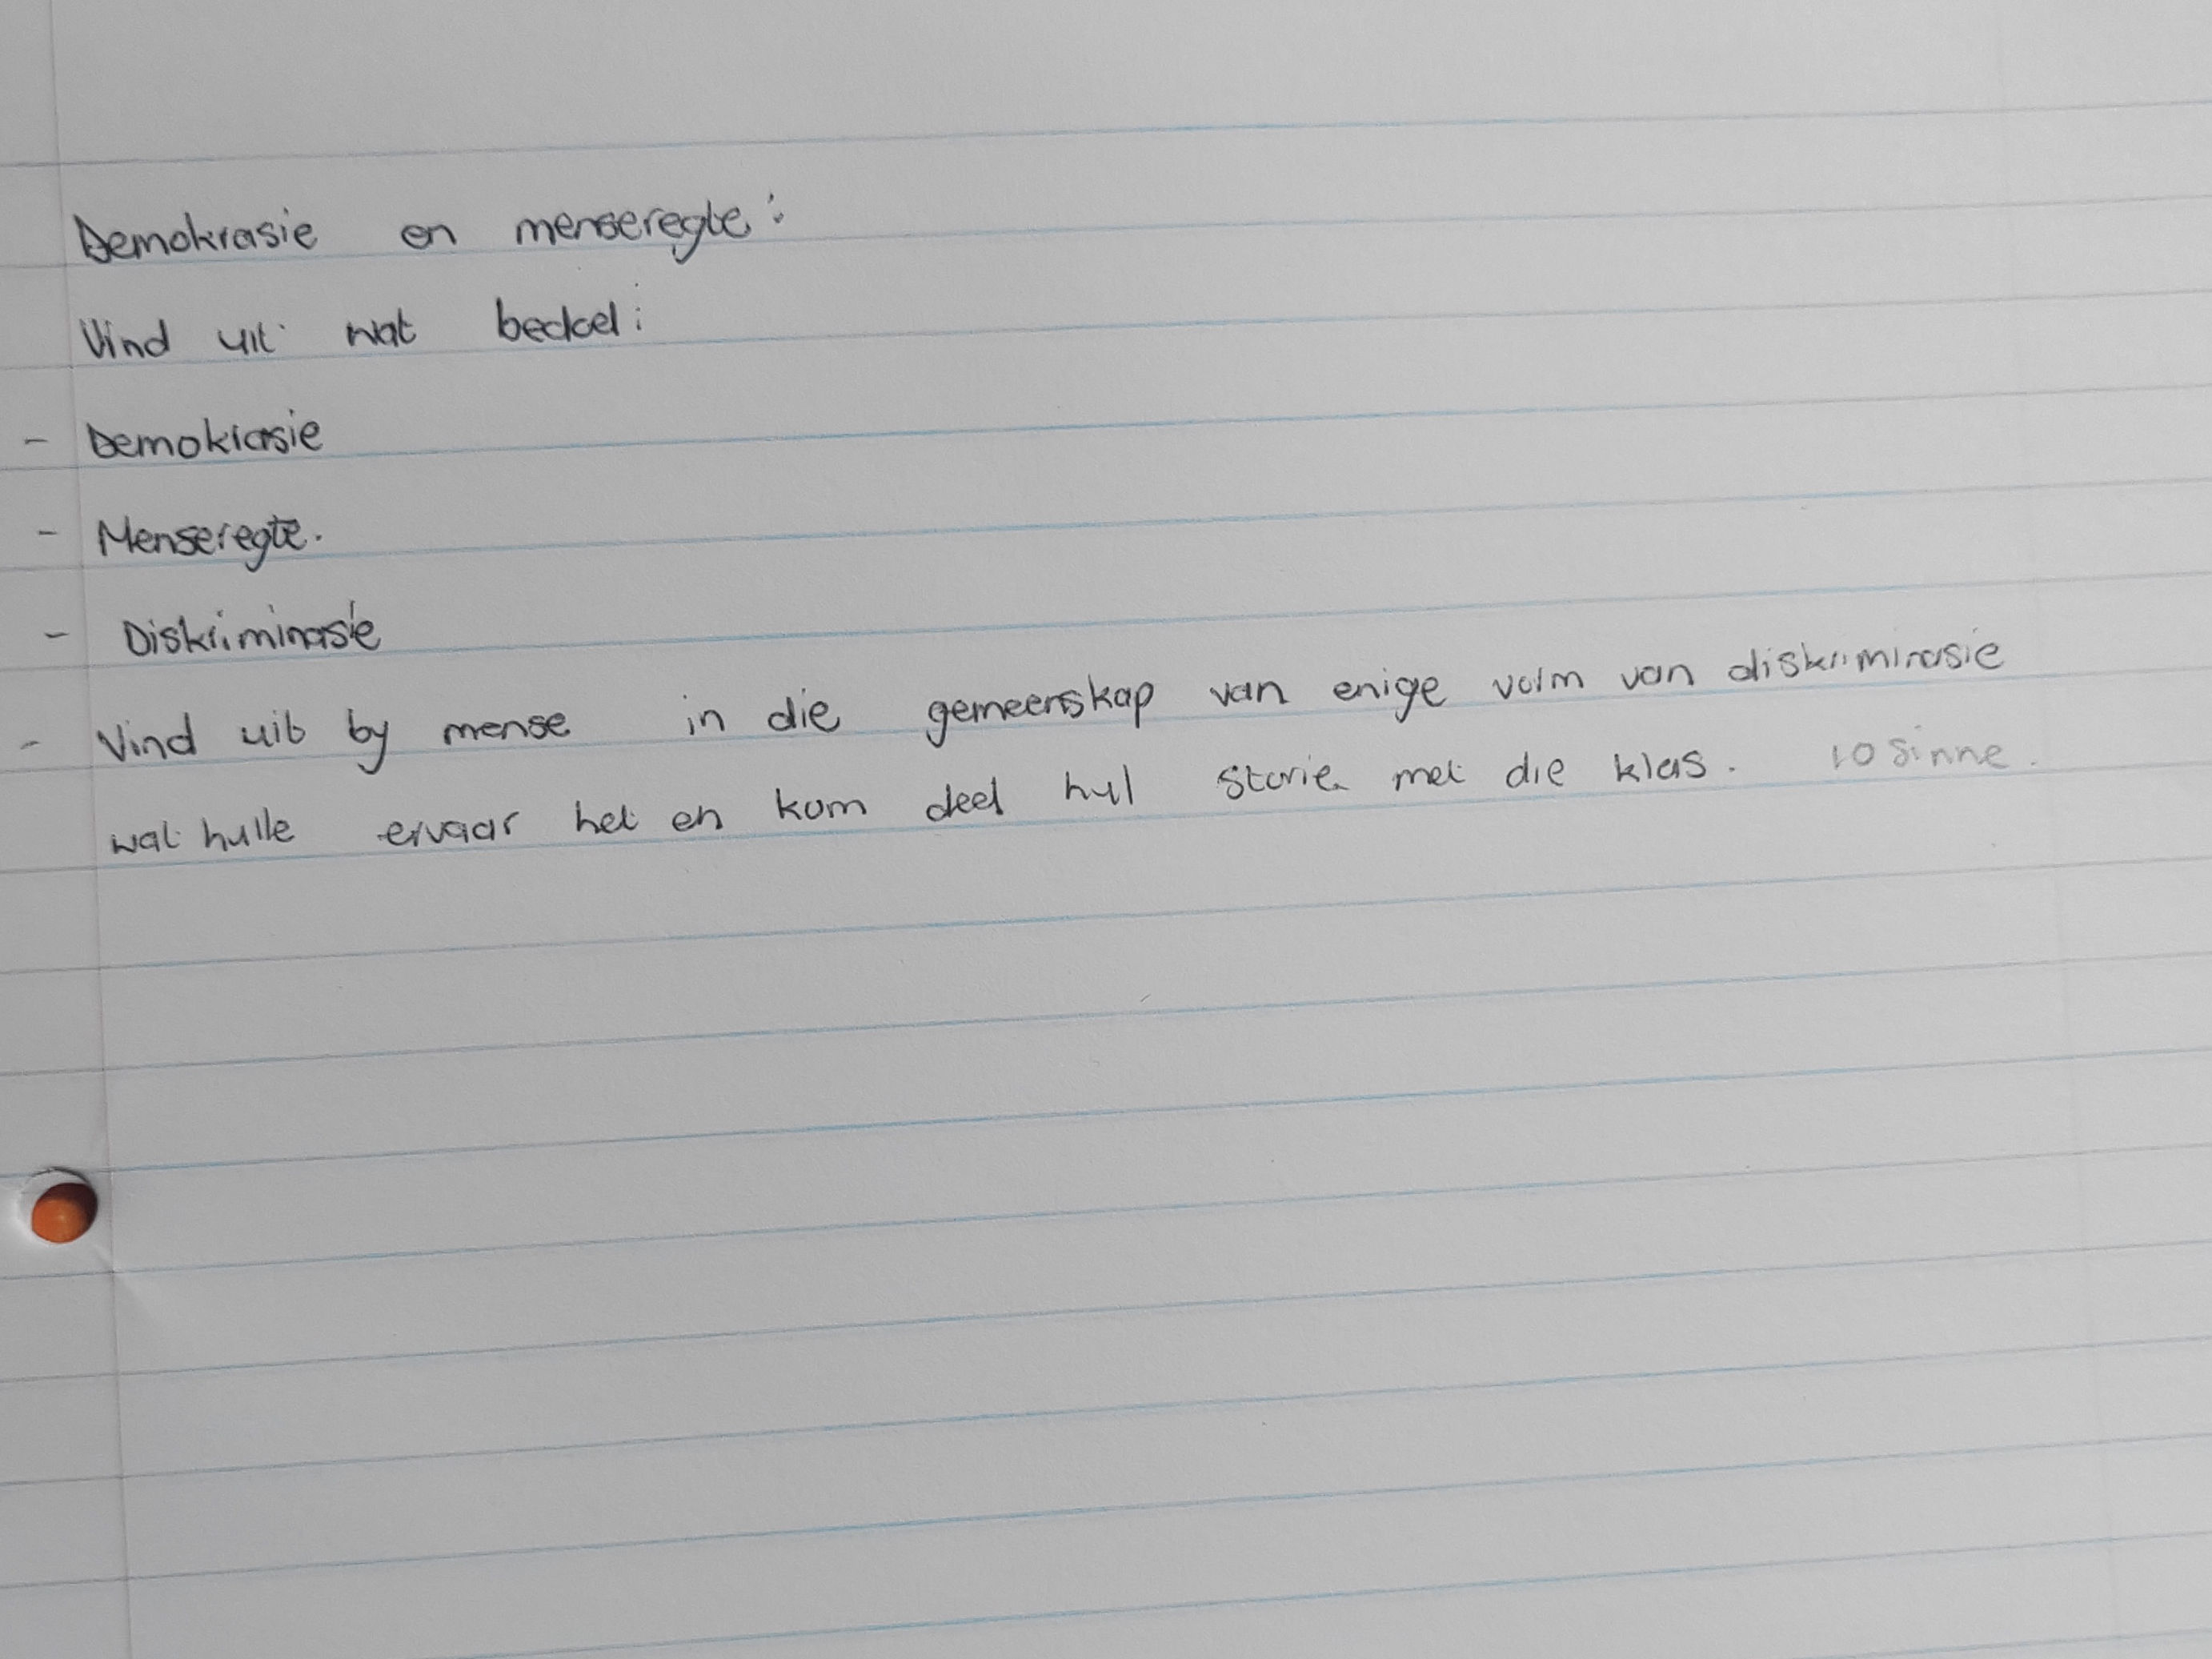 Demokrasie en menseregte:
Vind uit wat beteken:
- Demokrasie
- Menseregte.
- Diskriminasie
- Vind uit by mense in die gemeenskap van enige vorm van diskriminasie
wat hulle ervaar het en kom deel hul storie met die klas. 10 Sinne.